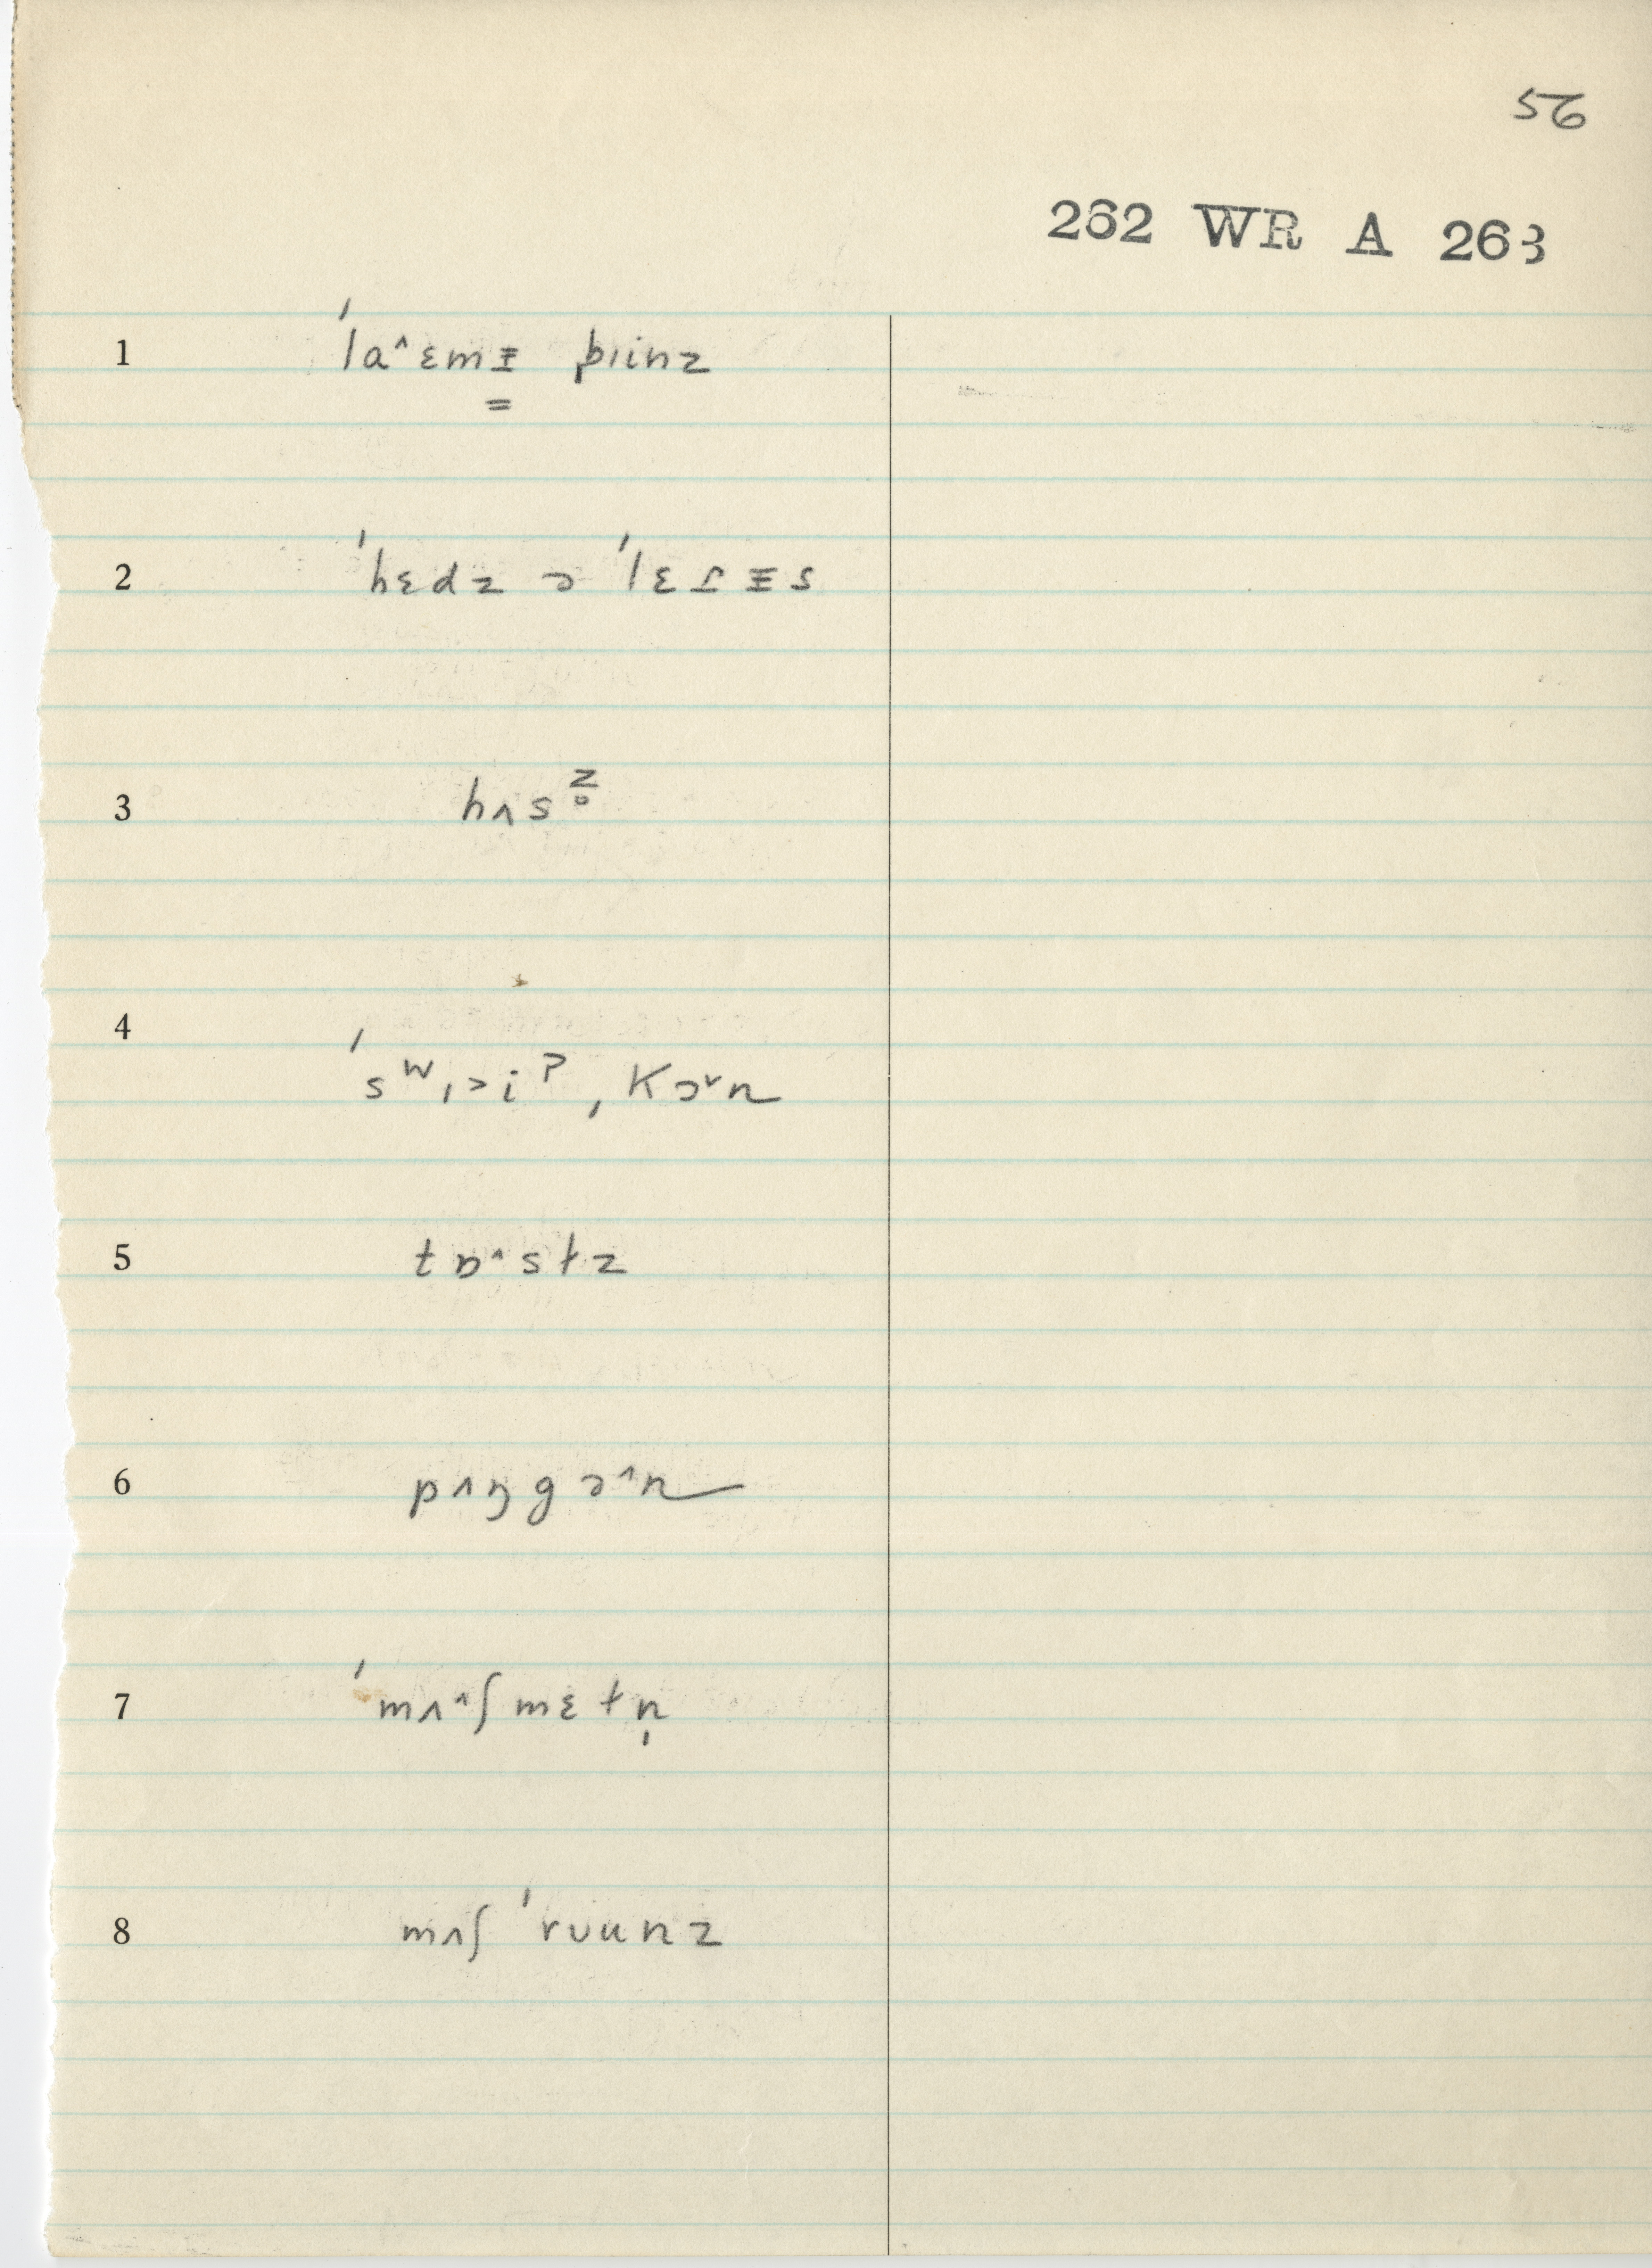 56
262 WR A 263
1 ˈlaˆɛmᵻ bɪinz
2 ˈhɛdz ə ˈlɛtᵻs
3 hʌsᶻ̥
4 ˈsʷɪ>iᵖ ˌkɔˇɚn
5 tɒˆsɫz
6 pʌŋgɔˆn
7 ˈmʌˆʃmɛɫn̩
8 mʌʃ ˈrʊunz